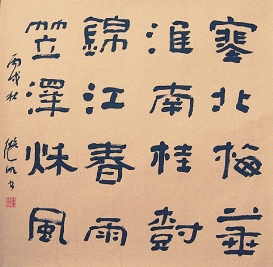 塞北梅華
淮南桂樹
錦江春雨
笠澤秌風
丙戌秋